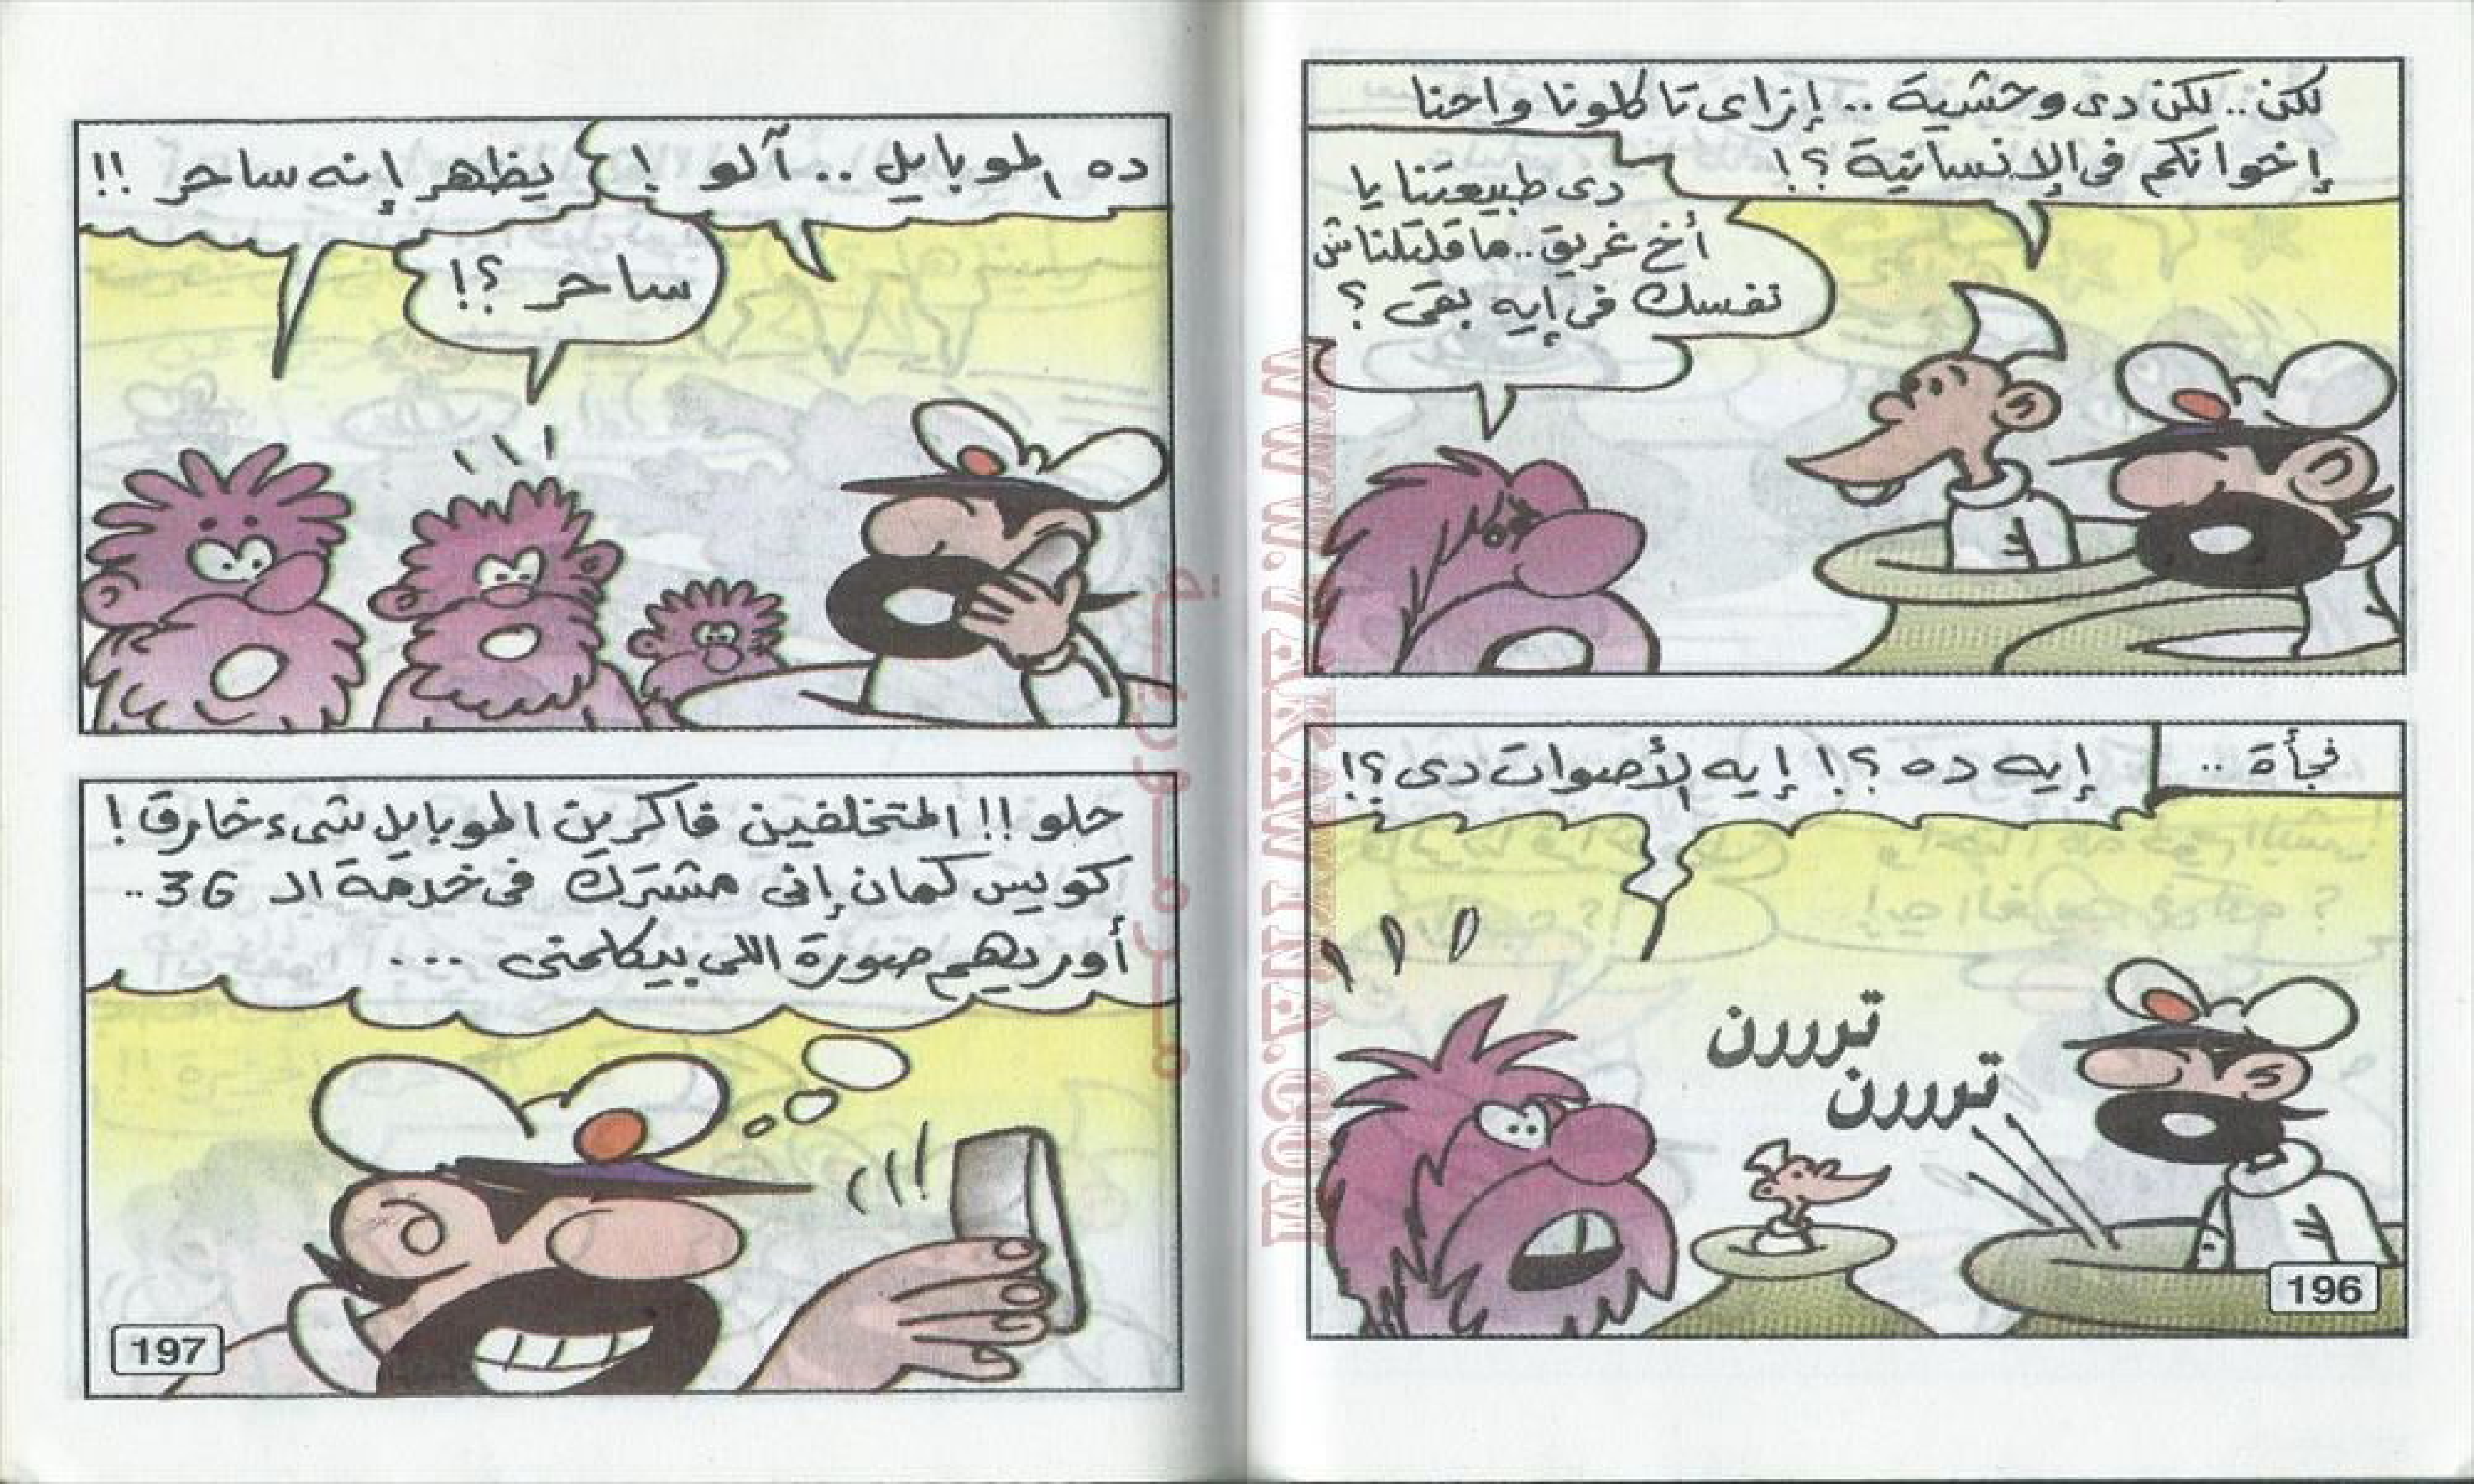 لكن.. لكن دى وحشية .. إزاى تاكلونا واحنا
إخوانكم فى الإنسانية ؟!
دى طبيعتنا يا
أخ غريق.. ماقلتلناش
نفسك فى إيه بقى ؟
فجأة ..
إيه ده ؟! إيه الأصوات دى ؟!
تررررن
تررررن
196
ده الموبايل .. آلو !
يظهر إنه ساحر !!
ساحر ؟!
حلو !! المتخلفين فاكرين الموبايل شىء خارق !
كويس كمان إنى مشترك فى خدمة الـ 3G ..
أوريهم صورة اللى بيكلمنى ...
197
WWW.ZAKAWTNA.COM